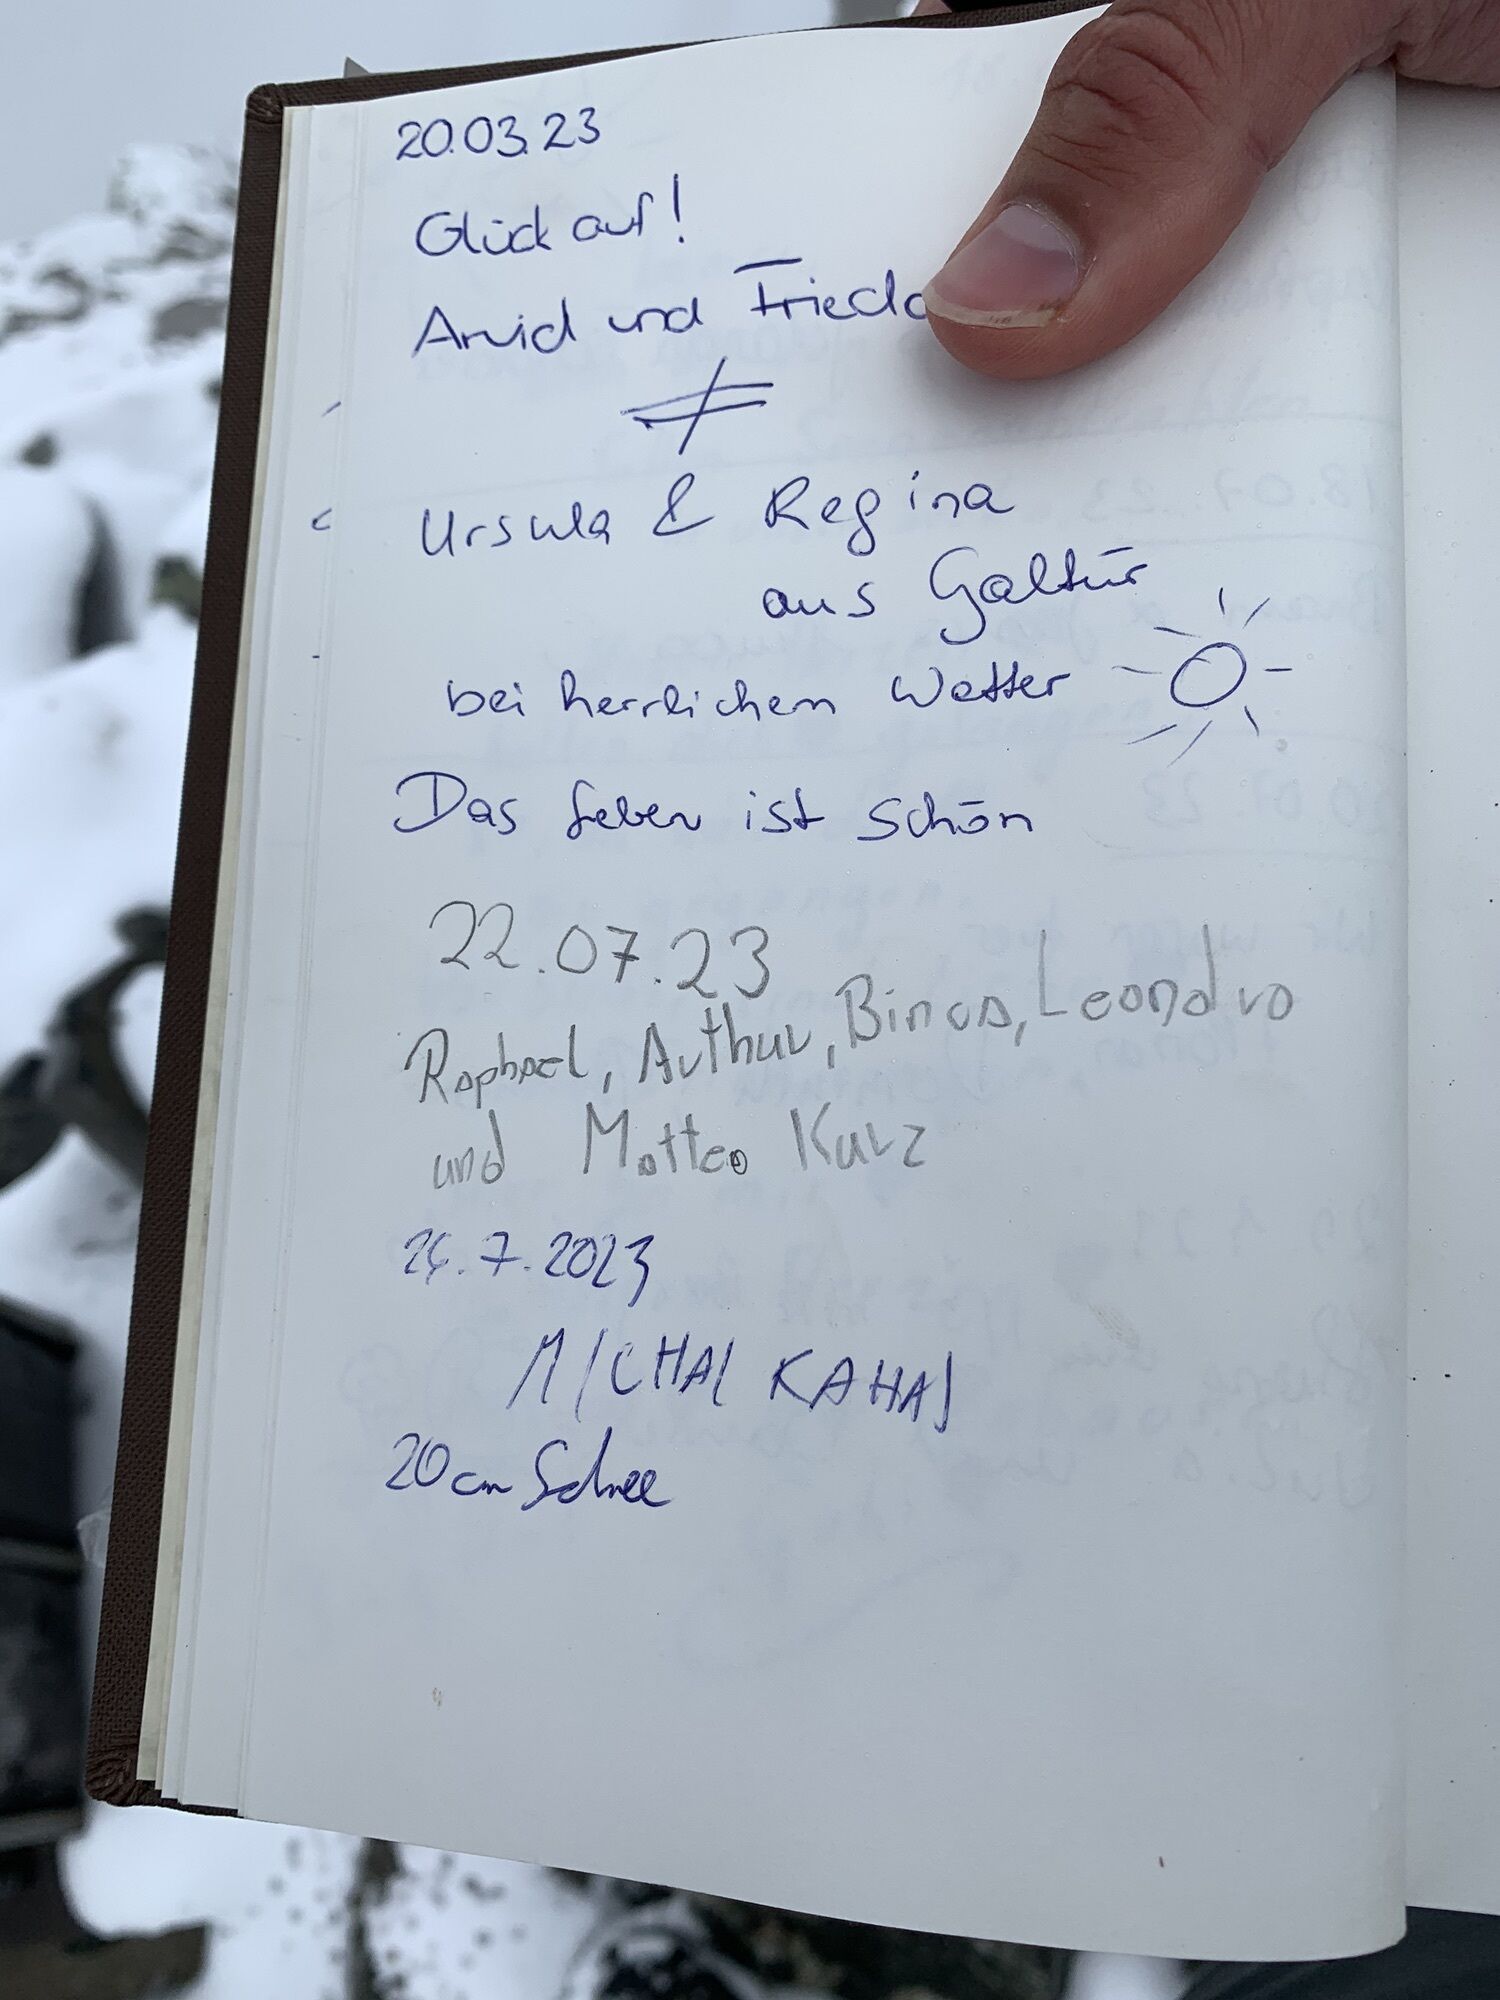 20.03.23
Glück auf!
Arvid und Frieda
Ursula & Regina
aus Galtür
bei herrlichem Wetter
Das Leben ist schön
22.07.23
Raphael, Arthur, Bincas, Leandro
und Matteo Kurz
26.7.2023
MICHAL KAHAJ
20cm Schnee